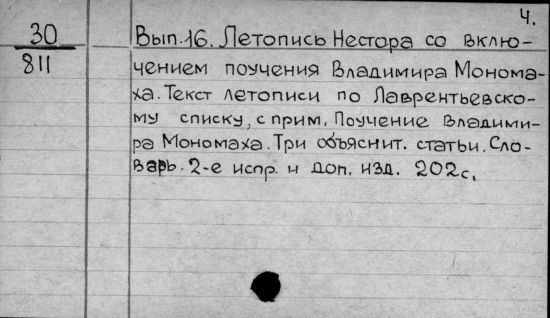 4.
30
811
Вып.16. Летопись Нестора со вклю-
чением поучения Владимира Монома-
ха. Текст летописи по Лаврентьевско-
му списку, с прим. Поучение Владими-
ра Мономаха. Три объяснит. статьи. Сло-
варь. 2-е испр. и доп. изд. 202с.